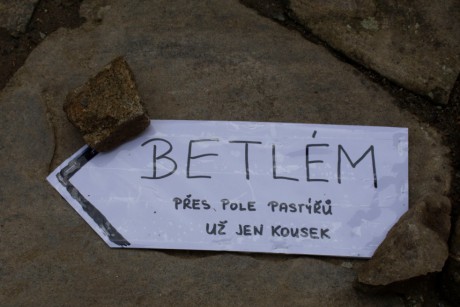 BETLÉM
PŘES POLE PASTÝŘŮ
UŽ JEN KOUSEK